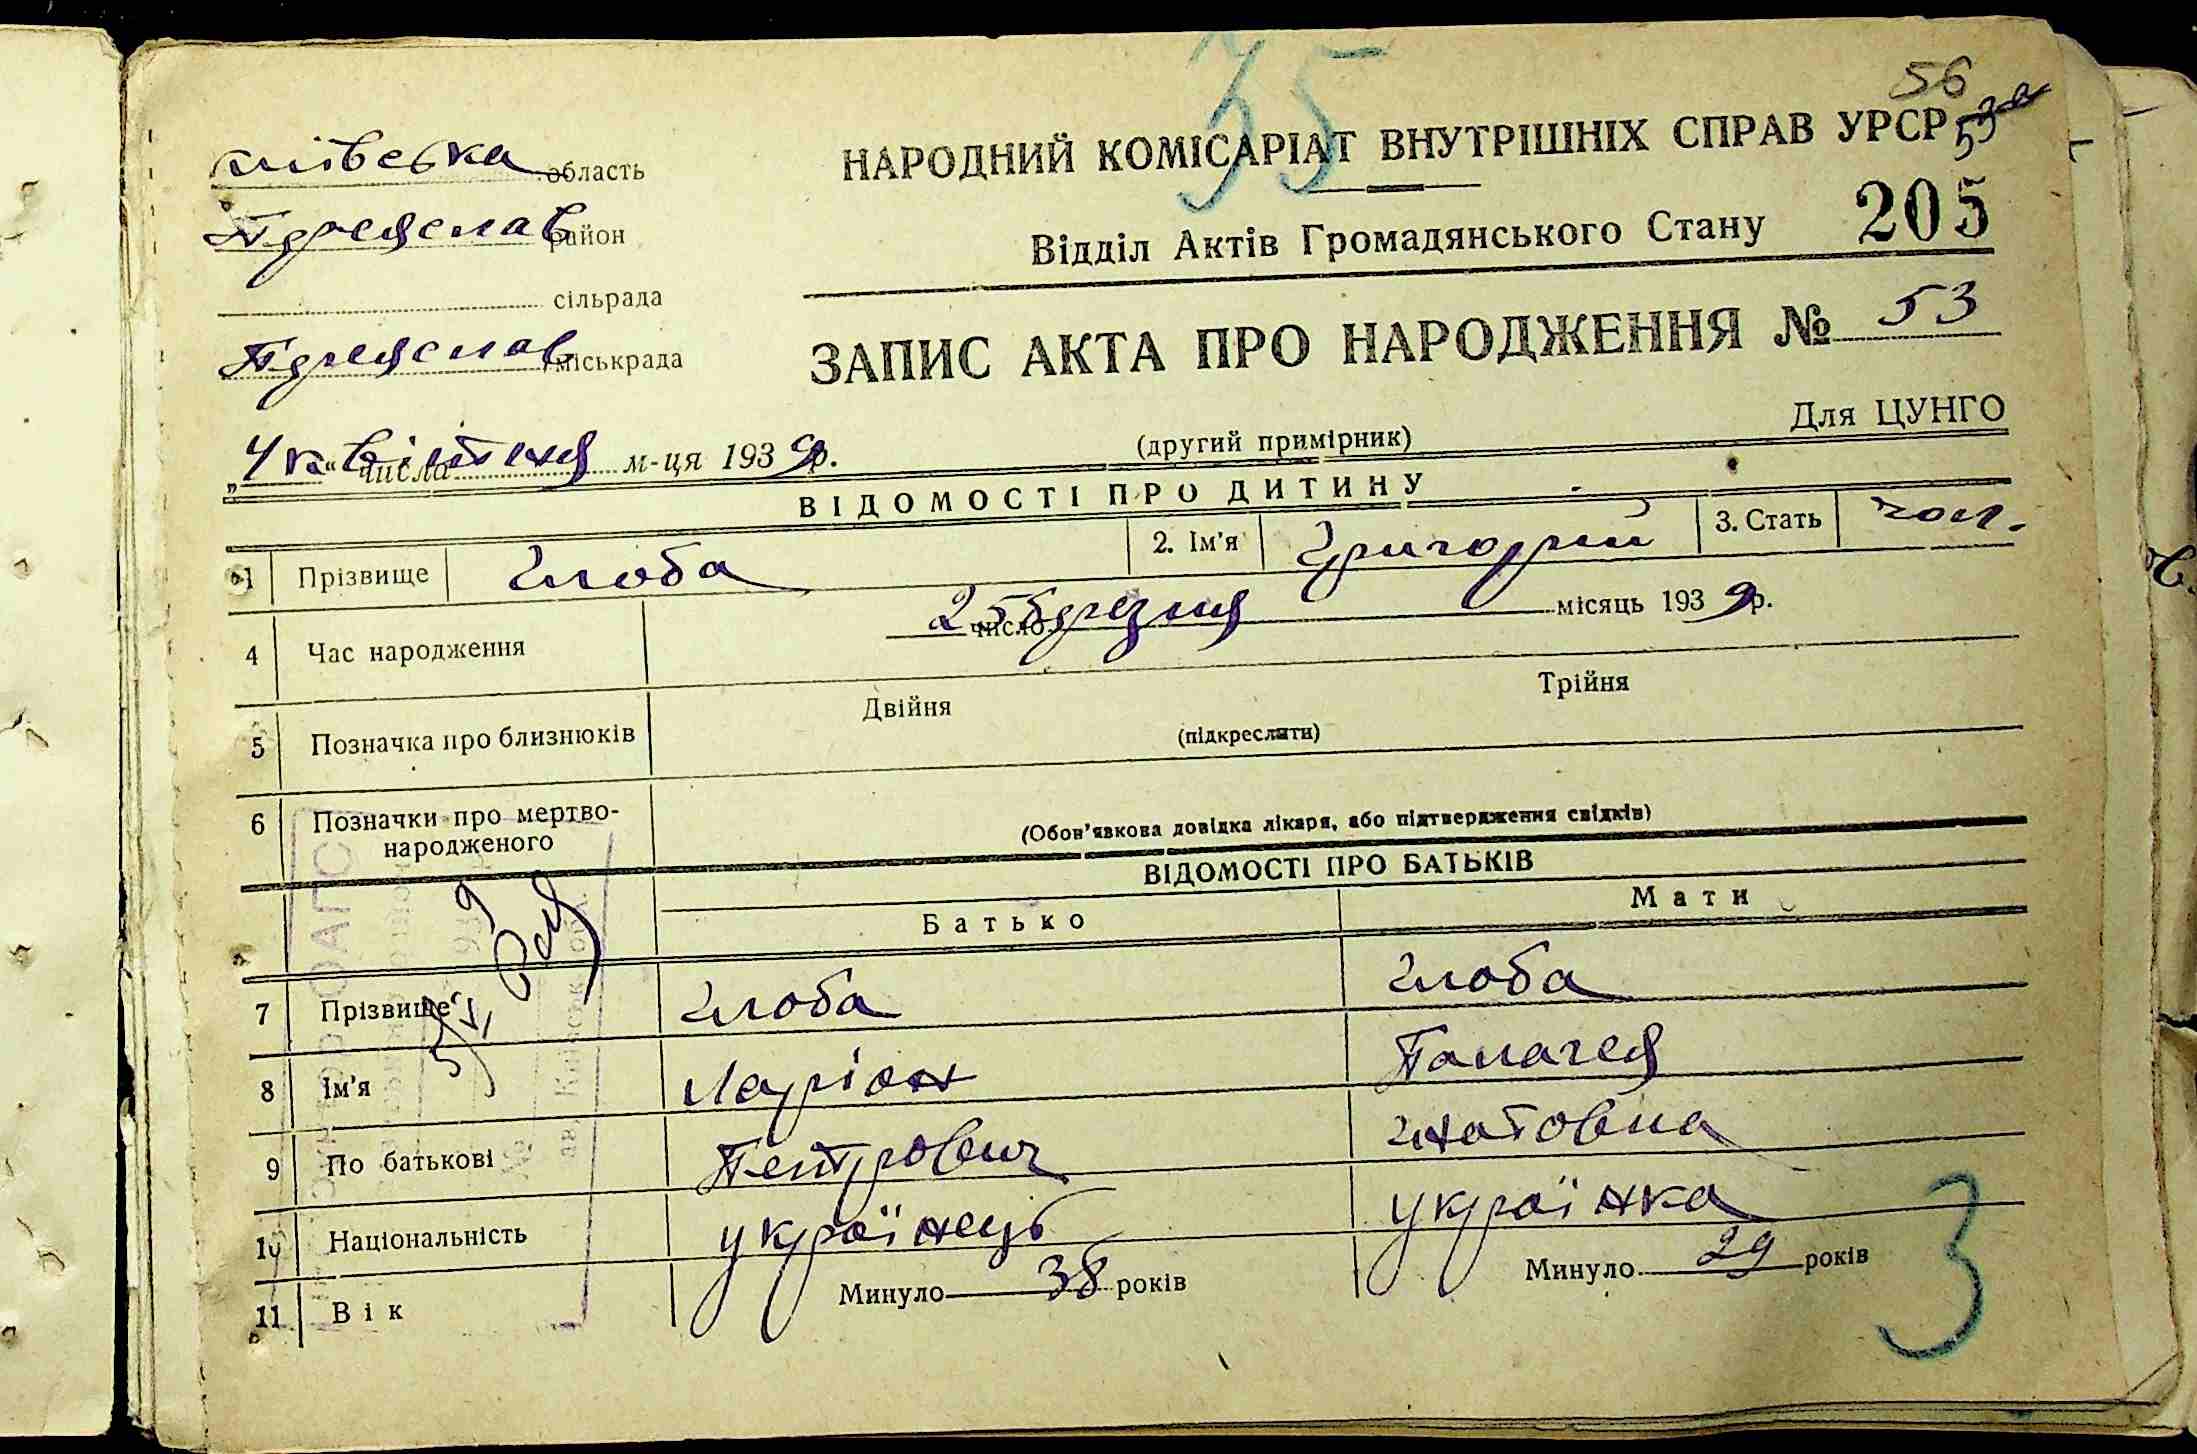 35
56
київська область
НАРОДНИЙ КОМІСАРІАТ ВНУТРІШНІХ СПРАВ УРСР
53
Переяслав район
Відділ Актів Громадянського Стану 205
сільрада
Переяслав міськрада
ЗАПИС АКТА ПРО НАРОДЖЕННЯ № 53
„4“ числа квітня м-ця 1939 р.
(другий примірник)
Для ЦУНГО
ВІДОМОСТІ ПРО ДИТИНУ
1 Прізвище Глоба 2. Ім'я Григорий 3. Стать чол.
4 Час народження 25 число березня місяць 1939 р.
5 Позначка про близнюків Двійня Трійня
(підкреслити)
6 Позначки про мертво-
народженого
(Обов'явкова довідка лікаря, або підтвердження свідків)
ВІДОМОСТІ ПРО БАТЬКІВ
Батько Мати
7 Прізвище Глоба Глоба
8 Ім'я Ларіон Палагея
9 По батькові Петрович Гнатовна
10 Національність українець українка
11 Вік Минуло 38 років Минуло 29 років
3